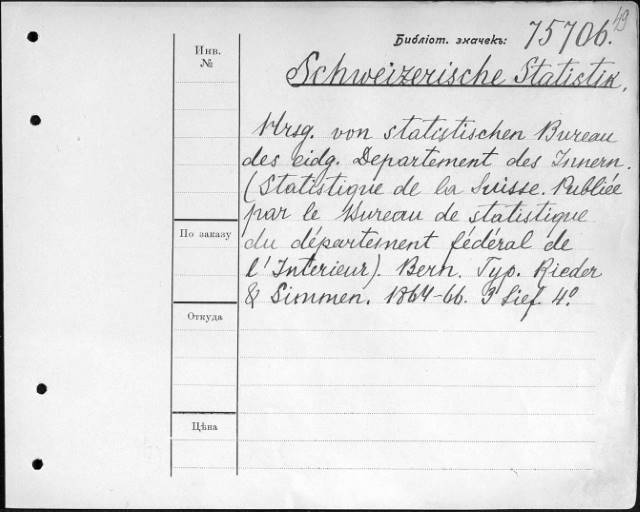 49
Библіот. значекъ: 75706.
Инв.
№
Schweizerische Statistik,
Hrsg. von statistischen Bureau
des eidg. Departement des Innern.
(Statistique de la Suisse. Publiée
par le Bureau de statistique
По заказу
du département fédéral de
l'Interieur). Bern. Typ. Rieder
& Simmen. 1864-66. 3 Lief. 4°
Откуда
Цѣна